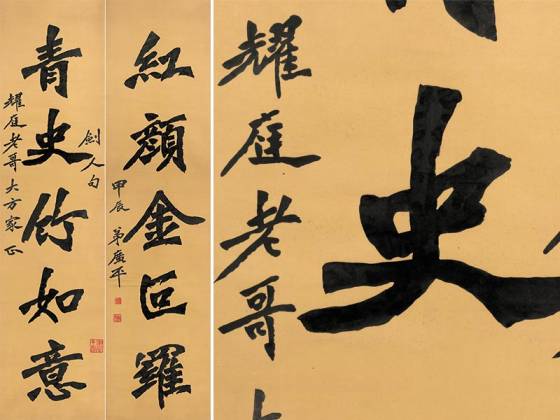 紅顏金叵羅
甲辰 弟廣平
劍人句
青史竹如意
耀庭老哥大方家正
史
耀庭老哥